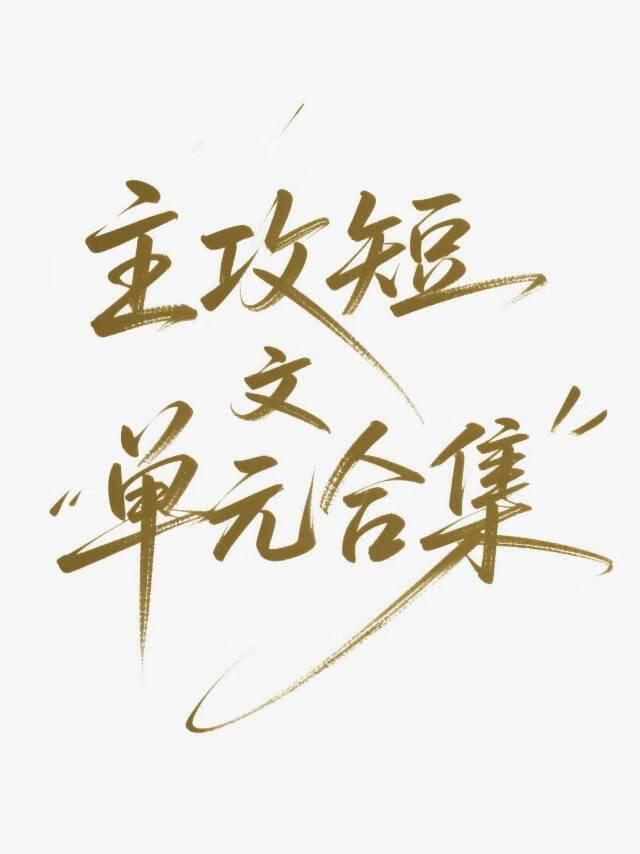 主攻短
文
“单元合集”